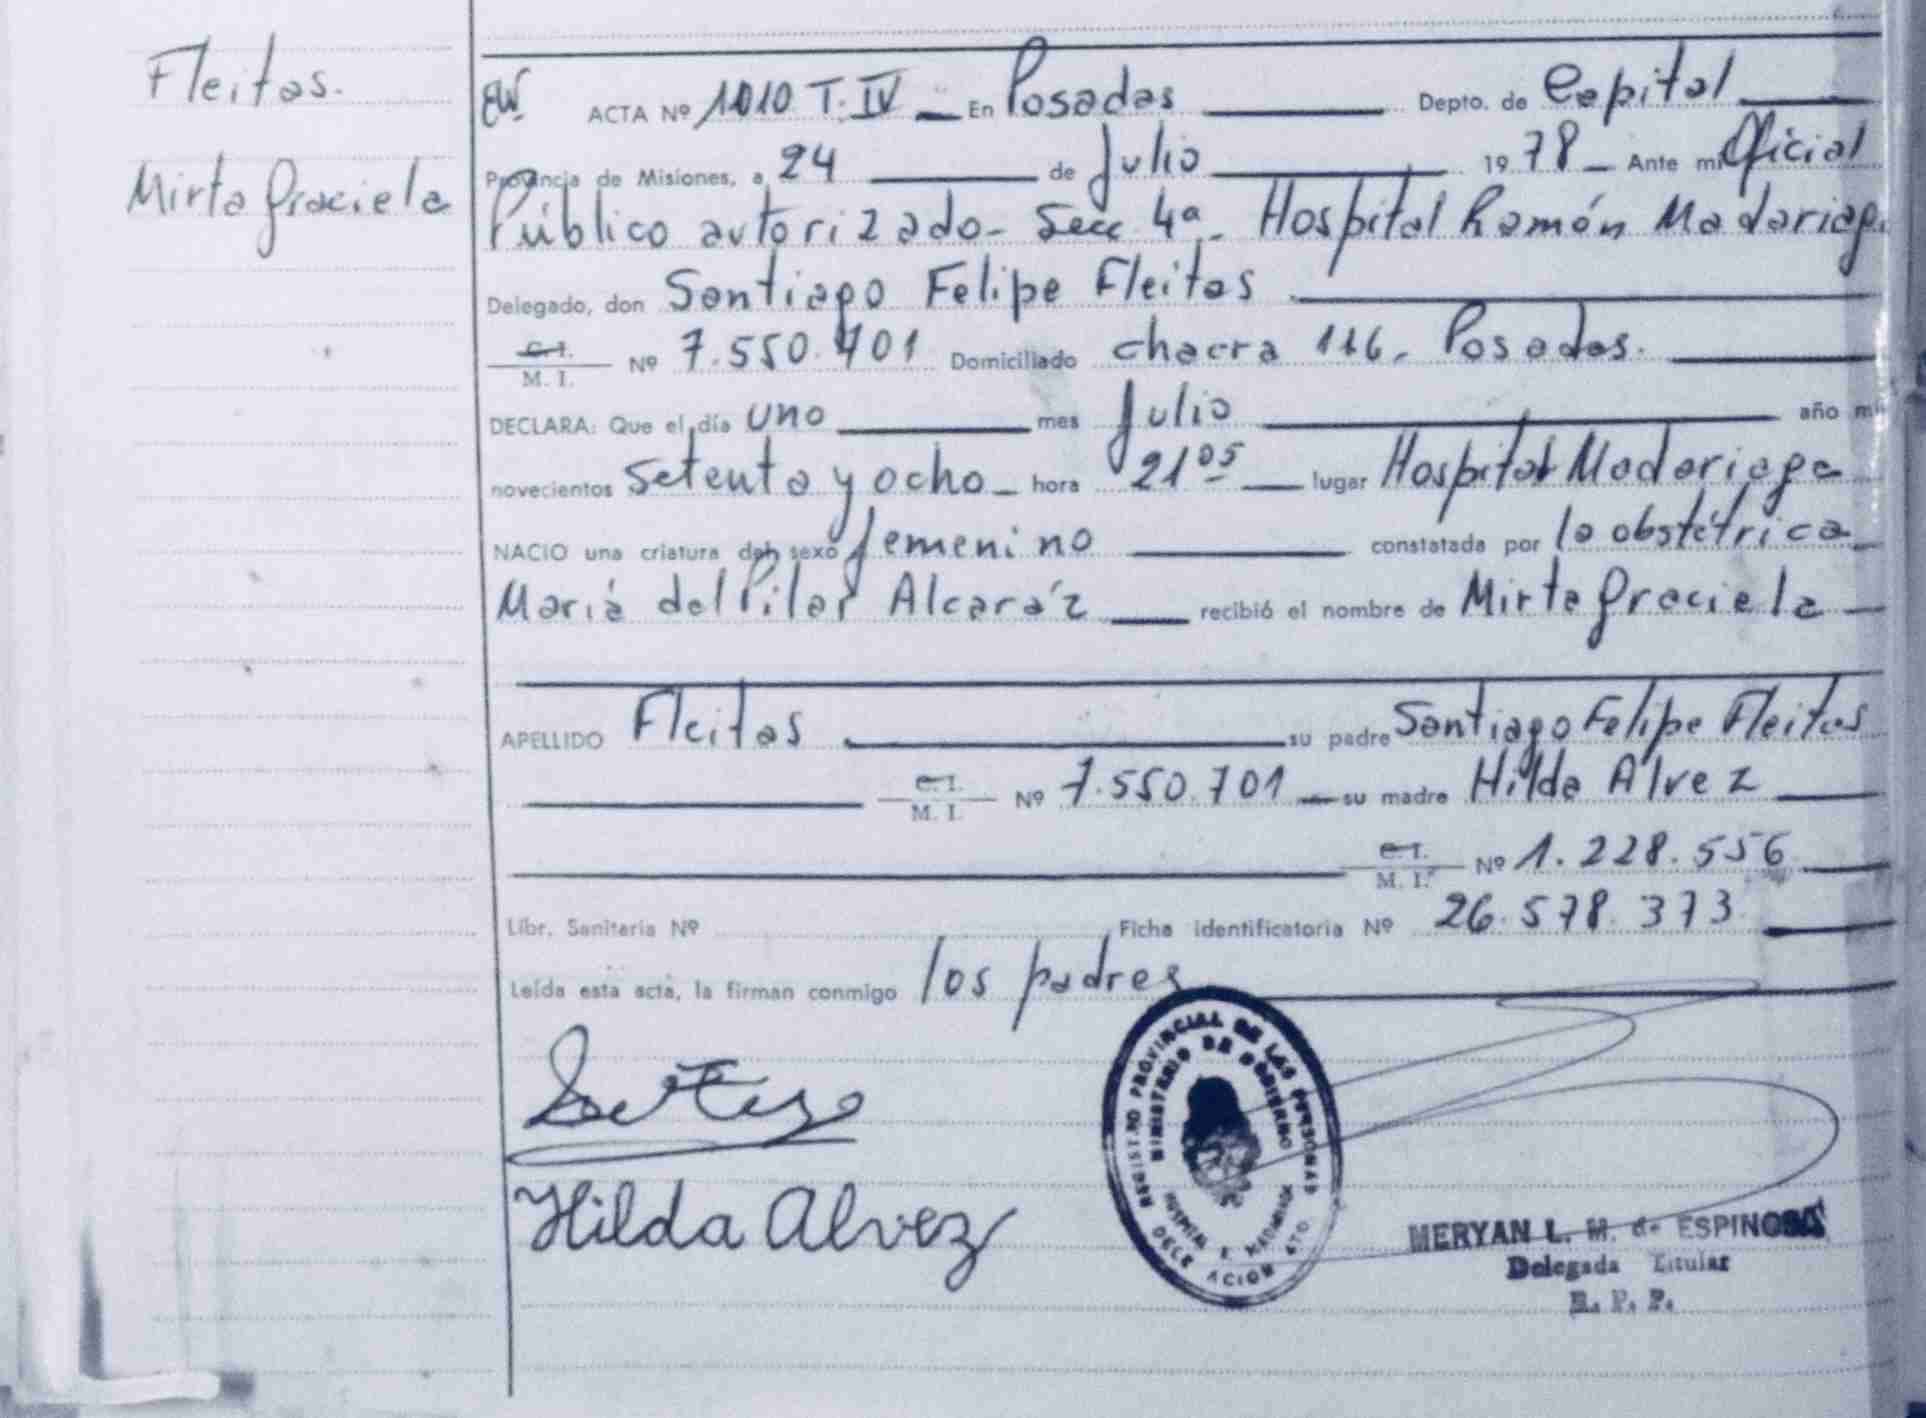 Fleitas.
Mirta Graciela
ACTA Nº 1010 T. IV — En Posadas Depto. de Capital
Provincia de Misiones, a 24 de Julio 1978 — Ante mi Oficial
Público autorizado - Secc 4ª - Hospital Ramón Madariaga
Delegado, don Santiago Felipe Fleitas
C. I.
M. I. Nº 7.550.701 Domiciliado chacra 116 - Posadas.
DECLARA: Que el día uno mes Julio año mil
novecientos setenta y ocho - hora 21 05 lugar Hospital Madariaga
NACIO una criatura del sexo femenino constatada por la obstétrica
María del Pilar Alcaráz recibió el nombre de Mirta Graciela
APELLIDO Fleitas su padre Santiago Felipe Fleitas
C. I.
M. I. Nº 7.550.701 su madre Hilda Alvez
C. I.
M. I. Nº 1.228.556
Libr. Sanitaria Nº Ficha identificatoria Nº 26.578.373
Leída esta acta, la firman conmigo los padres
Hilda Alvez
REGISTRO PROVINCIAL DE LAS PERSONAS
MINISTERIO DE GOBIERNO
HOSPITAL R. MADARIAGA
MERYAN L. M. de ESPINOSA
Delegada Titular
R. P. P.